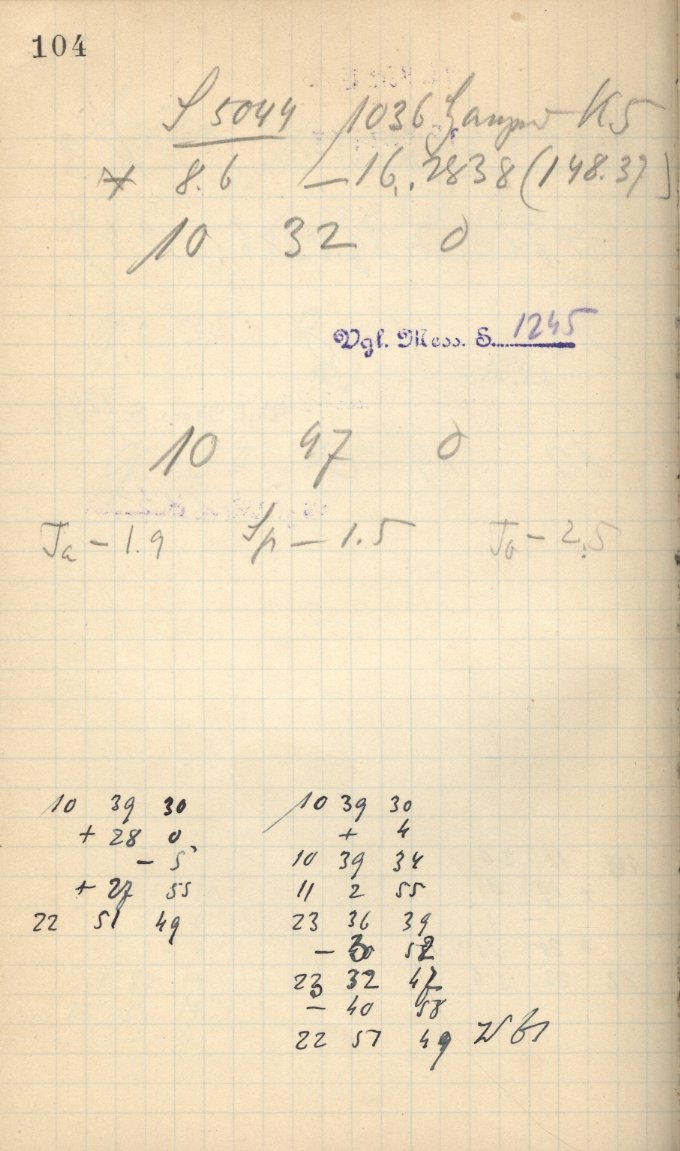 104
S 5044 1036 K5
8.6 — 16. 2838 (148.37)
10 32 0
Vgl. Mess. S. 1245
10 47 0
Ta – 1.9 Sp – 1.5 Tb – 2.5
10 39 30
+ 28 0
– 5
+ 27 55
22 51 49
10 39 30
+ 4
10 39 34
11 2 55
23 36 39
– 3 52
23 32 47
– 40 58
22 51 49